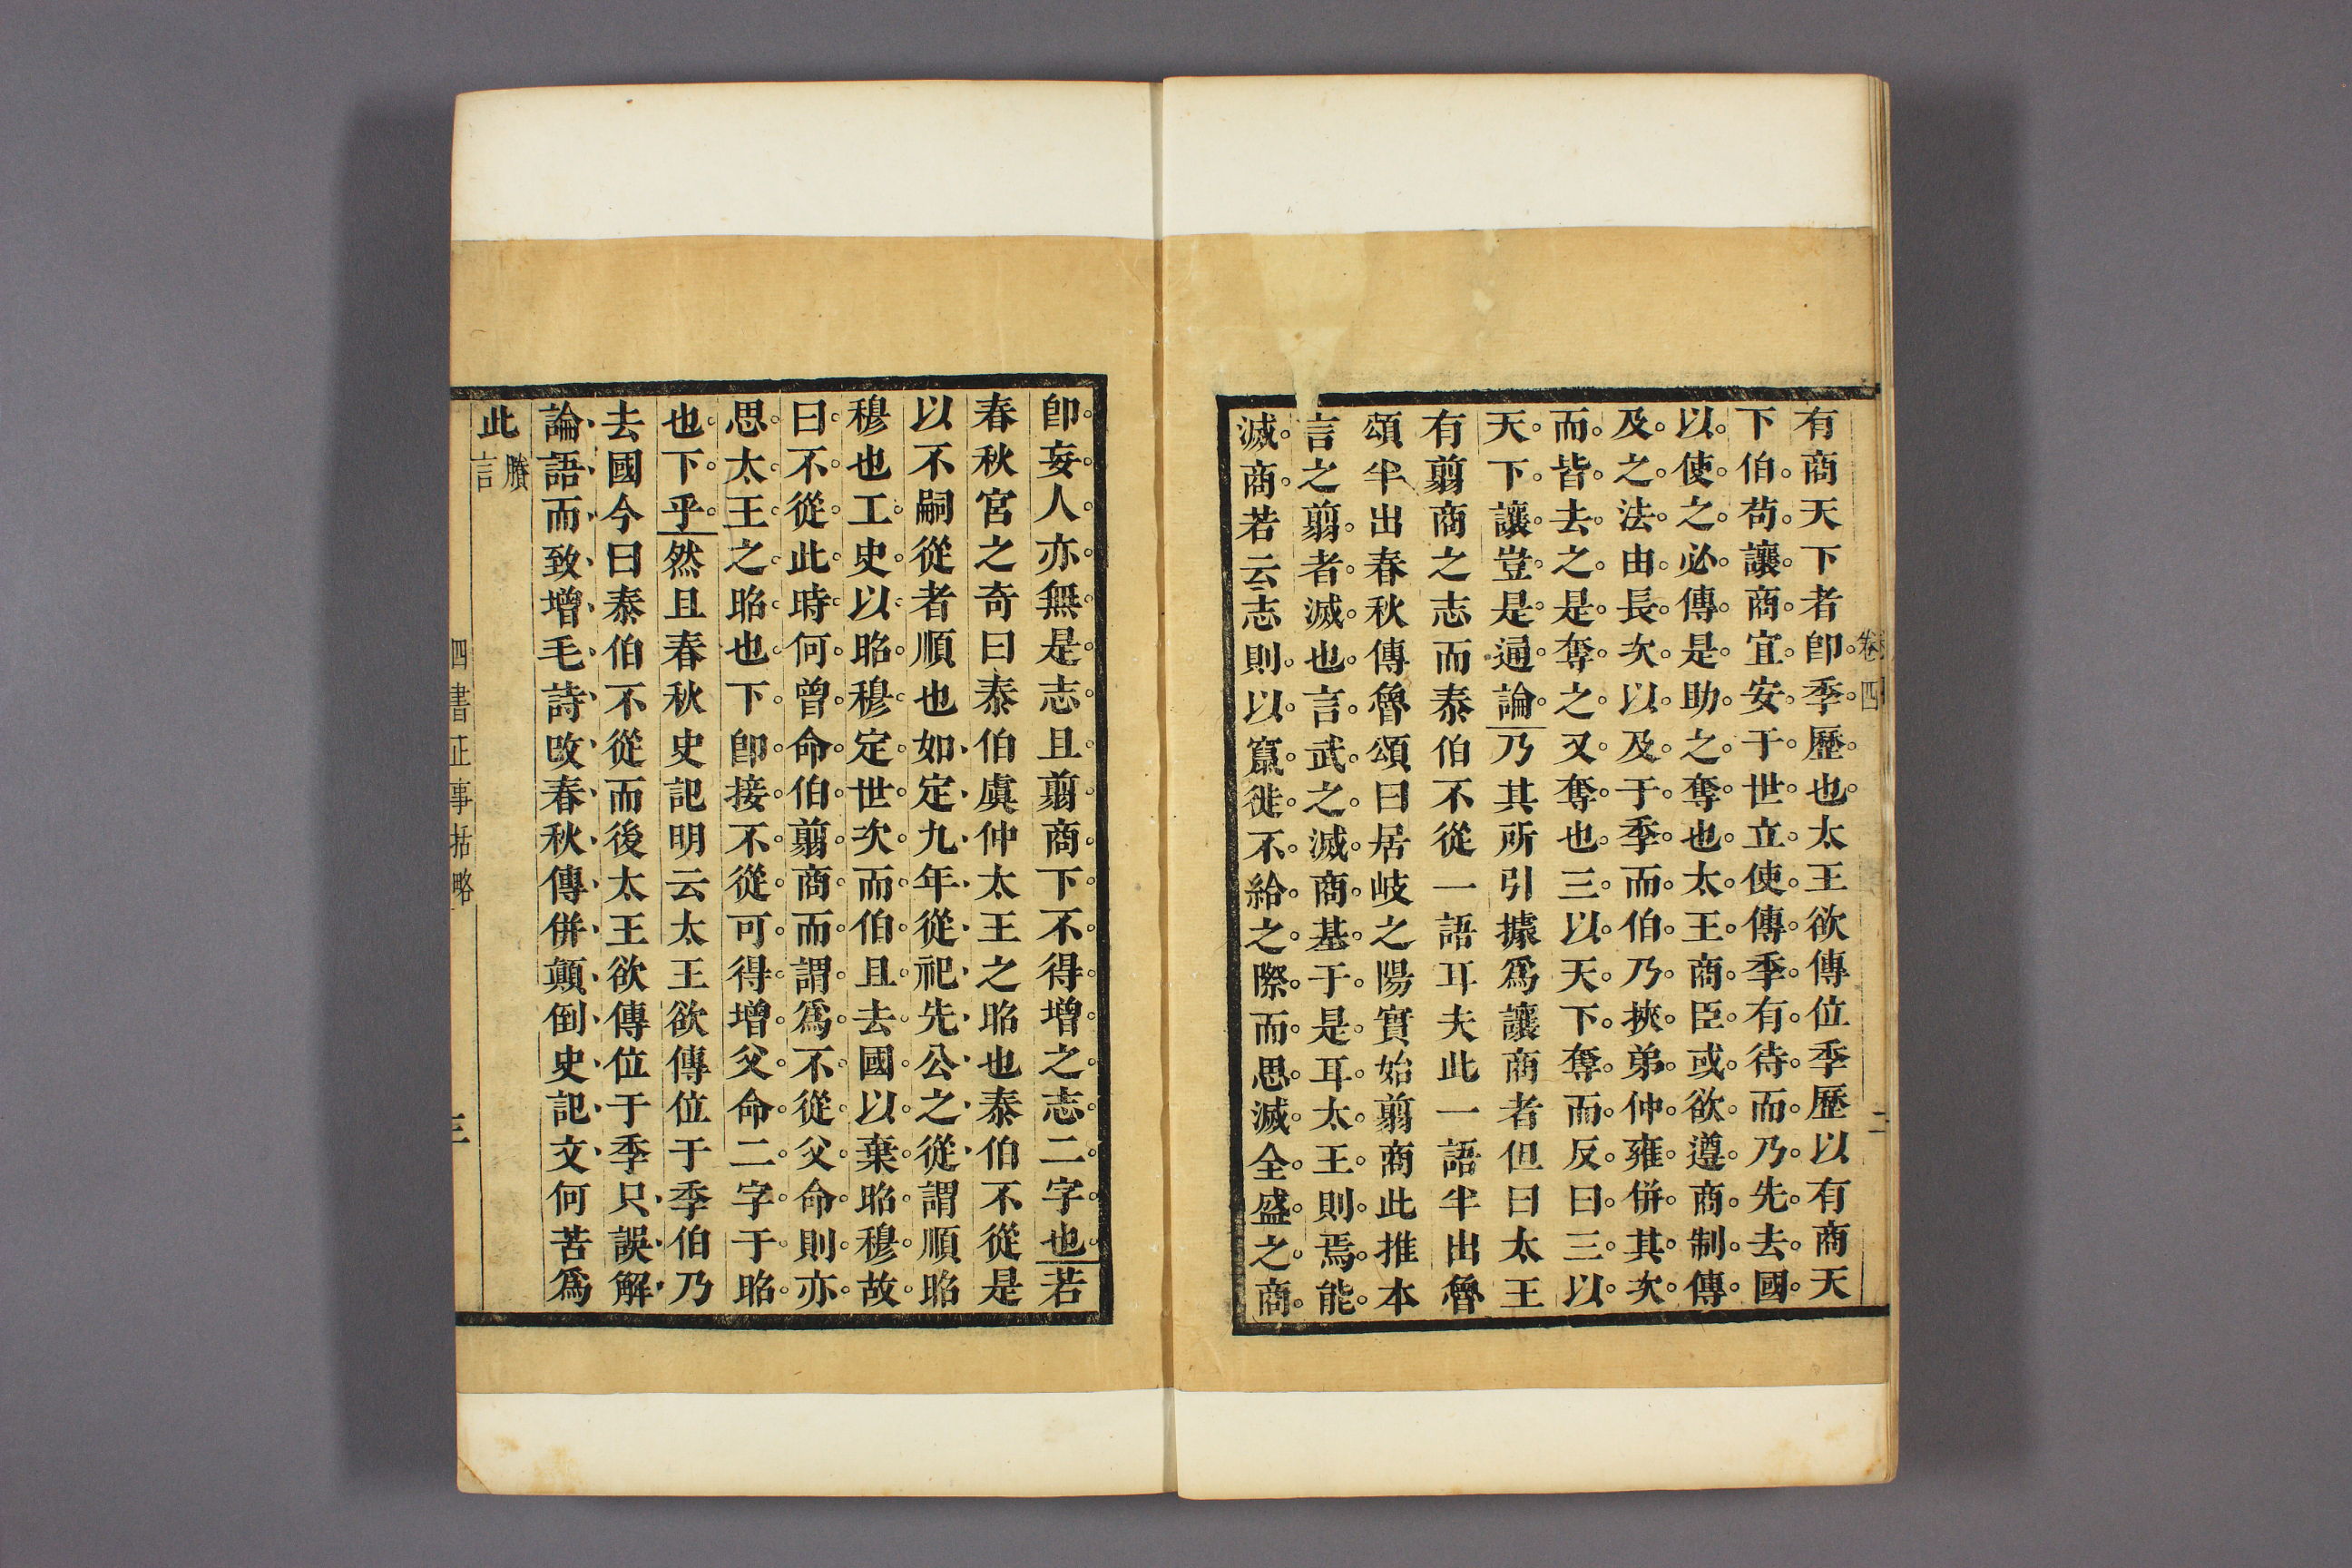 卷四
二
有商天下者卽季歷也太王欲傳位季歷以有商天
下伯苟讓商宜安于世立使傳季有待而乃先去國
以使之必傳是助之奪也太王商臣或欲遵商制傳
及之法由長次以及于季而伯乃挾弟仲雍併其次
而皆去之是奪之又奪也三以天下奪而反曰三以
天下讓豈是通論乃其所引據爲讓商者但曰太王
有翦商之志而泰伯不從一語耳夫此一語半出魯
頌半出春秋傳魯頌曰居岐之陽實始翦商此推本
言之翦者滅也言武之滅商基于是耳太王則焉能
滅商若云志則以竄徙不給之際而思滅全盛之商
卽妄人亦無是志且翦商下不得增之志二字也若
春秋宮之奇曰泰伯虞仲太王之昭也泰伯不從是
以不嗣從者順也如定九年從祀先公之從謂順昭
穆也工史以昭穆定世次而伯且去國以棄昭穆故
曰不從此時何曾命伯翦商而謂爲不從父命則亦
思太王之昭也下卽接不從可得增父命二字于昭
也下乎然且春秋史記明云太王欲傳位于季伯乃
去國今曰泰伯不從而後太王欲傳位于季只誤解
論語而致增毛詩改春秋傳併顛倒史記文何苦爲
此賸言
四書正事括略
三